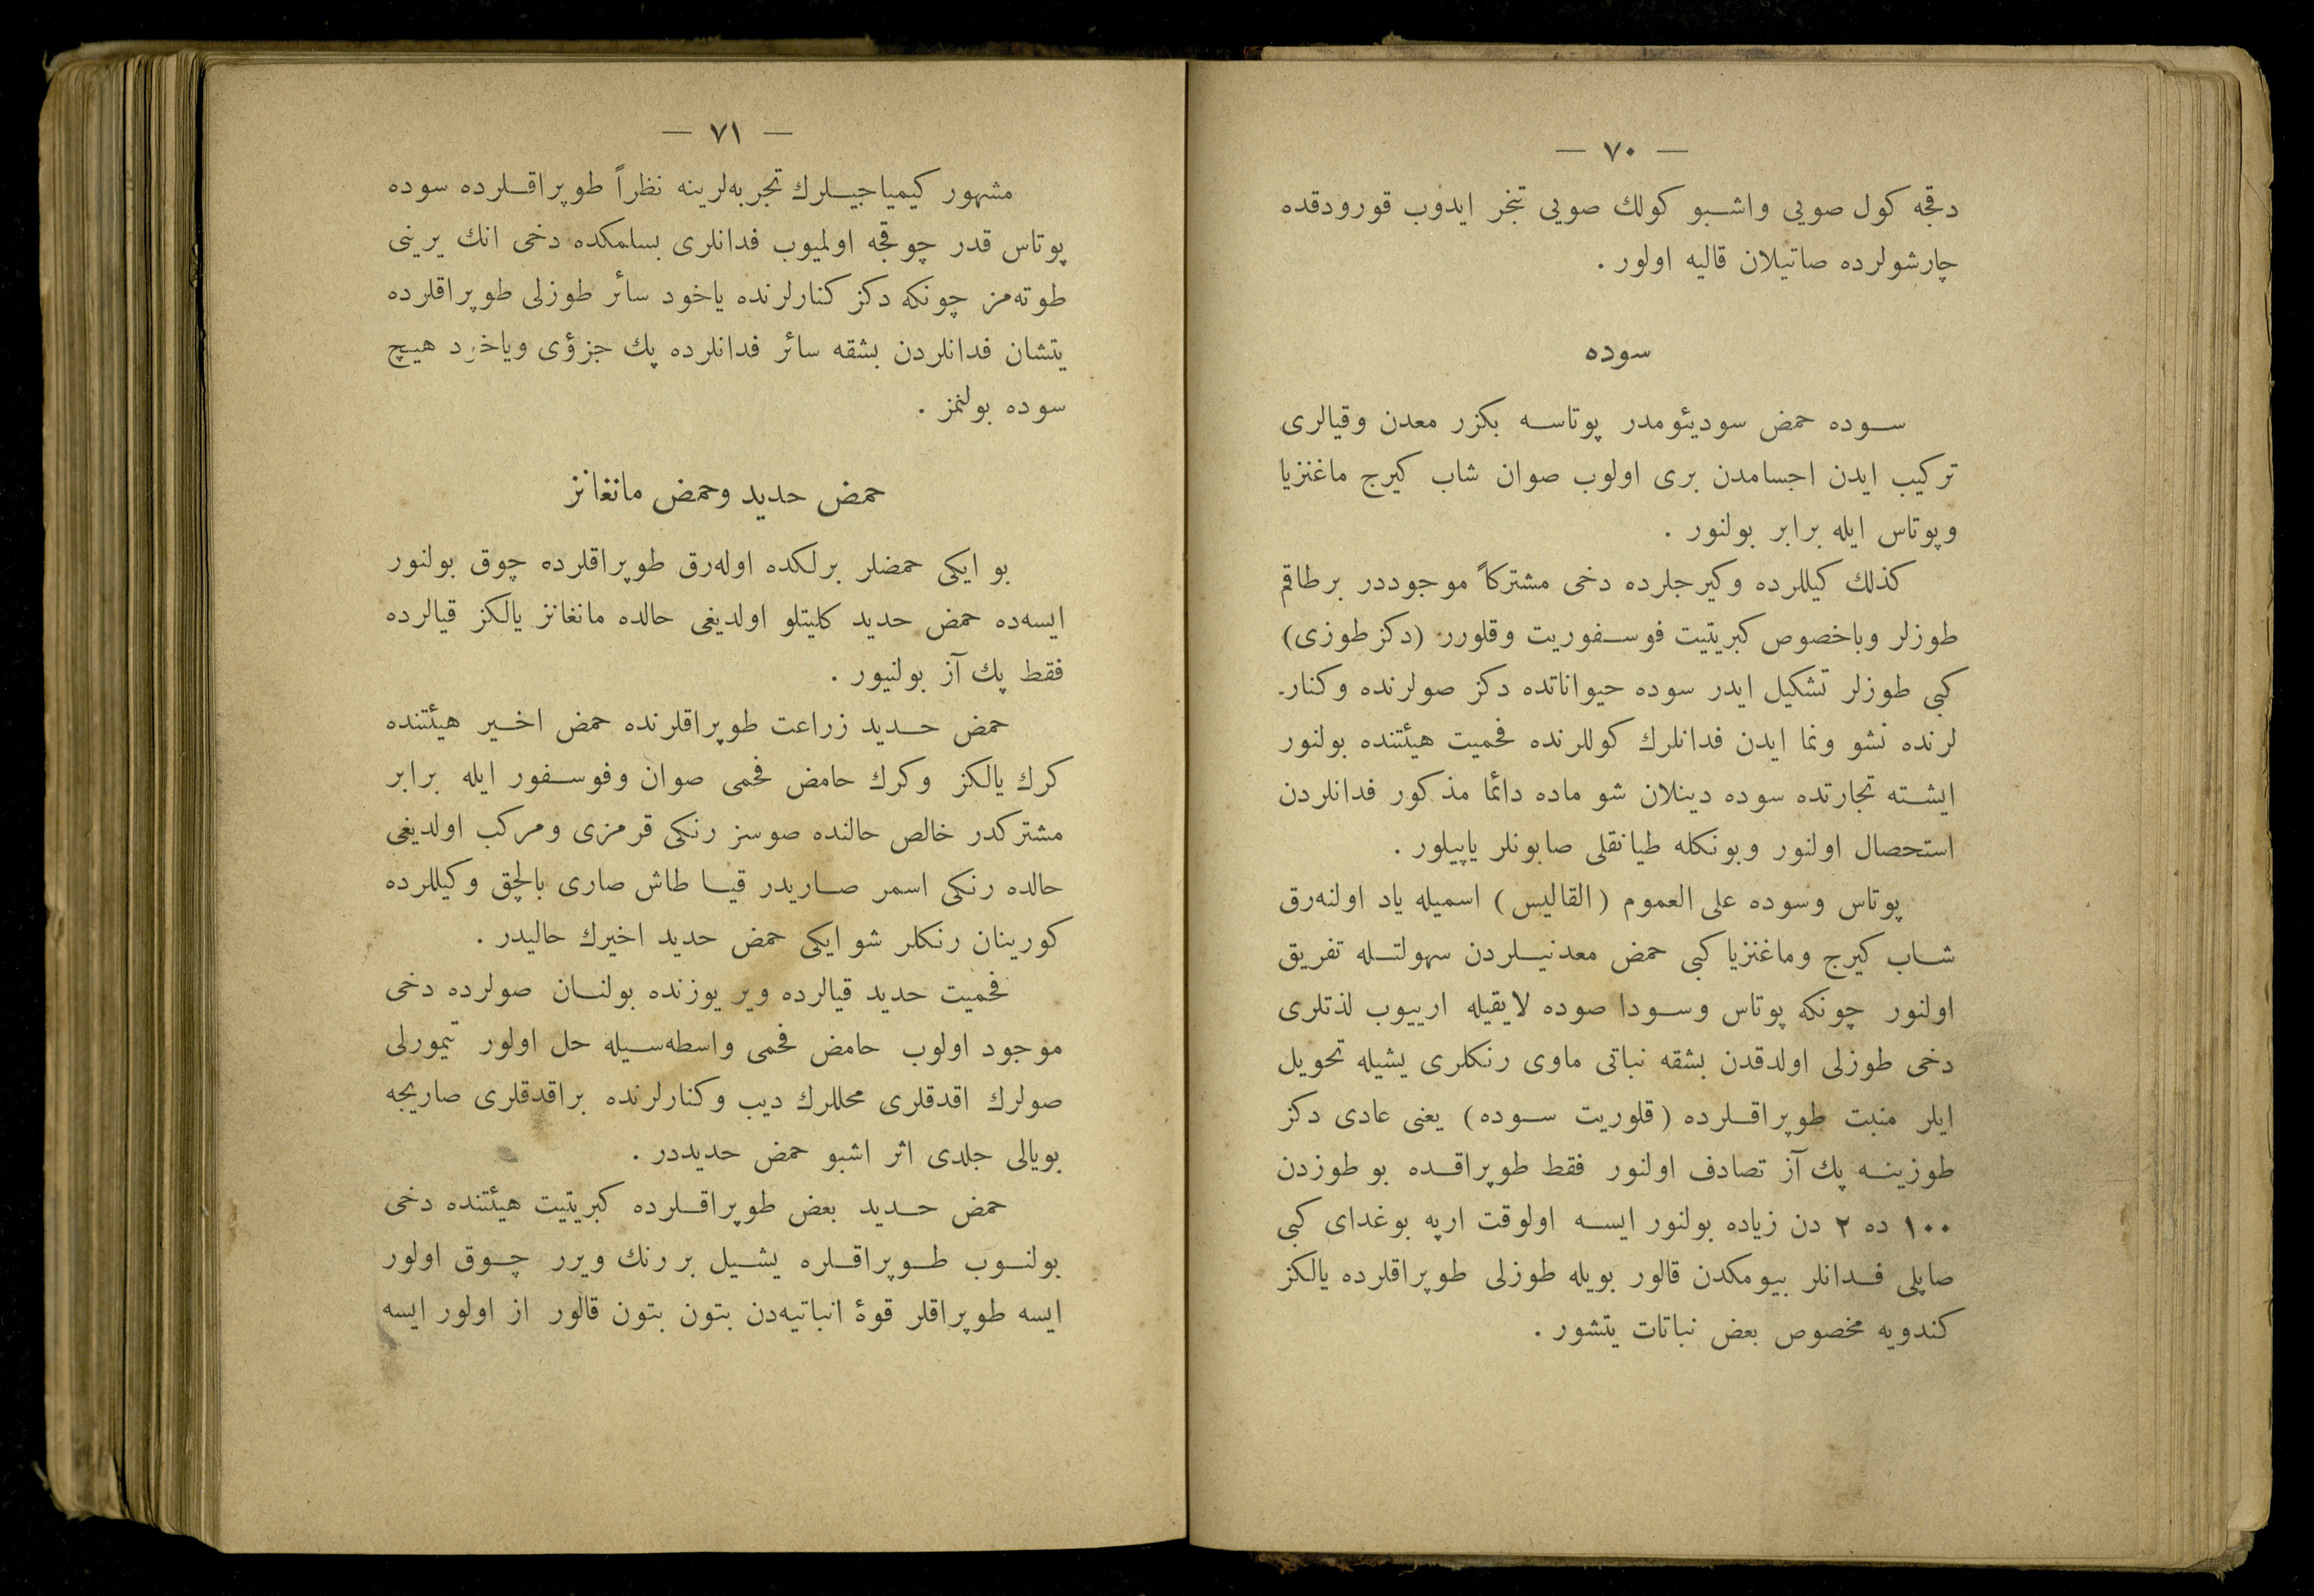 — ٧٠ —
دقجه كول صویی واشبو كولك صویی تبخر ایدوب قورودقده
چارشولرده صاتیلان قالیه اولور .
سوده
سوده حمض سودیئومدر پوتاسه بكزر معدن وقیالری
تركیب ایدن اجسامدن بری اولوب صوان شاب كیرج ماغنزیا
وپوتاس ایله برابر بولنور .
كذلك كیللرده وكیرجلرده دخی مشتركاً موجوددر برطاقم
طوزلر وباخصوص كبریتیت فوسفوریت وقلورر (دكز طوزی)
كبی طوزلر تشكیل ایدر سوده حیواناتده دكز صولرنده وكنار-
لرنده نشو ونما ایدن فدانلرك كوللرنده فحمیت هیئتنده بولنور
ایشته تجارتده سوده دینلان شو ماده دائما مذكور فدانلردن
استحصال اولنور وبونكله طیانقلی صابونلر یاپیلور .
پوتاس وسوده علی العموم (القالیس) اسمیله یاد اولنه‌رق
شاب كیرج وماغنزیا كبی حمض معدنیلردن سهولتله تفریق
اولنور چونكه پوتاس وسودا صوده لایقیله ارییوب لذتلری
دخی طوزلی اولدقدن بشقه نباتی ماوی رنكلری یشیله تحویل
ایلر منبت طوپراقلرده (قلوریت سوده) یعنی عادی دكز
طوزینه پك آز تصادف اولنور فقط طوپراقده بو طوزدن
١٠٠ ده ٢ دن زیاده بولنور ایسه اولوقت ارپه بوغدای كبی
صاپلی فدانلر بیومكدن قالور بویله طوزلی طوپراقلرده یالكز
كندویه مخصوص بعض نباتات یتشور .
— ٧١ —
مشهور كیمیاجیلرك تجربه‌لرینه نظراً طوپراقلرده سوده
پوتاس قدر چوقجه اولمیوب فدانلری بسلمكده دخی انك یرینی
طوته‌مز چونكه دكز كنارلرنده یاخود سائر طوزلی طوپراقلرده
یتشان فدانلردن بشقه سائر فدانلرده پك جزؤی ویاخود هیچ
سوده بولنمز .
حمض حدید وحمض مانغانز
بو ایكی حمضلر برلكده اوله‌رق طوپراقلرده چوق بولنور
ایسه‌ده حمض حدید كلیتلو اولدیغی حالده مانغانز یالكز قیالرده
فقط پك آز بولنیور .
حمض حدید زراعت طوپراقلرنده حمض اخیر هیئتنده
كرك یالكز وكرك حامض فحمی صوان وفوسفور ایله برابر
مشتركدر خالص حالنده صوسز رنكی قرمزی ومركب اولدیغی
حالده رنكی اسمر صاریدر قیا طاش صاری بالچق وكیللرده
كورینان رنكلر شو ایكی حمض حدید اخیرك حالیدر .
فحمیت حدید قیالرده ویر یوزنده بولنان صولرده دخی
موجود اولوب حامض فحمی واسطه‌سیله حل اولور تیمورلی
صولرك اقدقلری محللرك دیب وكنارلرنده براقدقلری صاریجه
بویالی جلدی اثر اشبو حمض حدیددر .
حمض حدید بعض طوپراقلرده كبریتیت هیئتنده دخی
بولنوب طوپراقلره یشیل بر رنك ویرر چوق اولور
ایسه طوپراقلر قوۀ انباتیه‌دن بتون بتون قالور از اولور ایسه